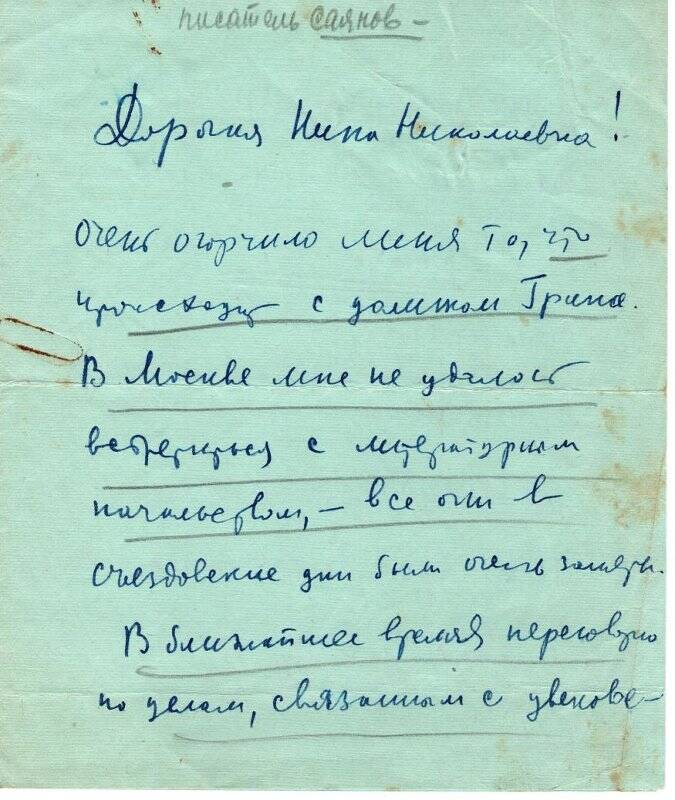 писатель Саянов –
Дорогая Нина Николаевна!
Очень огорчило меня то, что
происходит с домиком Грина.
В Москве мне не удалось
встретиться с литературным
начальством, – все они в
съездовские дни были очень заняты.
В ближайшее время переговорю
по делам, связанным с увекове–